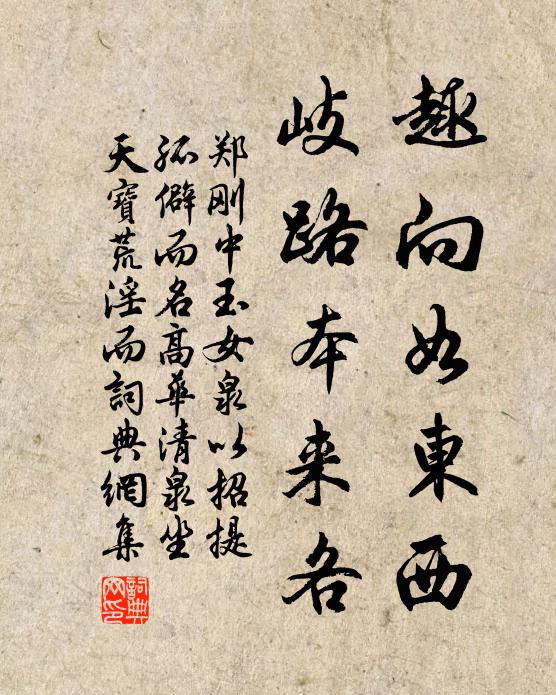 趣向如東西
岐路本来各
郑刚中玉女泉以招提
孤僻而名高華清泉坐
天寶荒淫而詞典網集
詞典网印